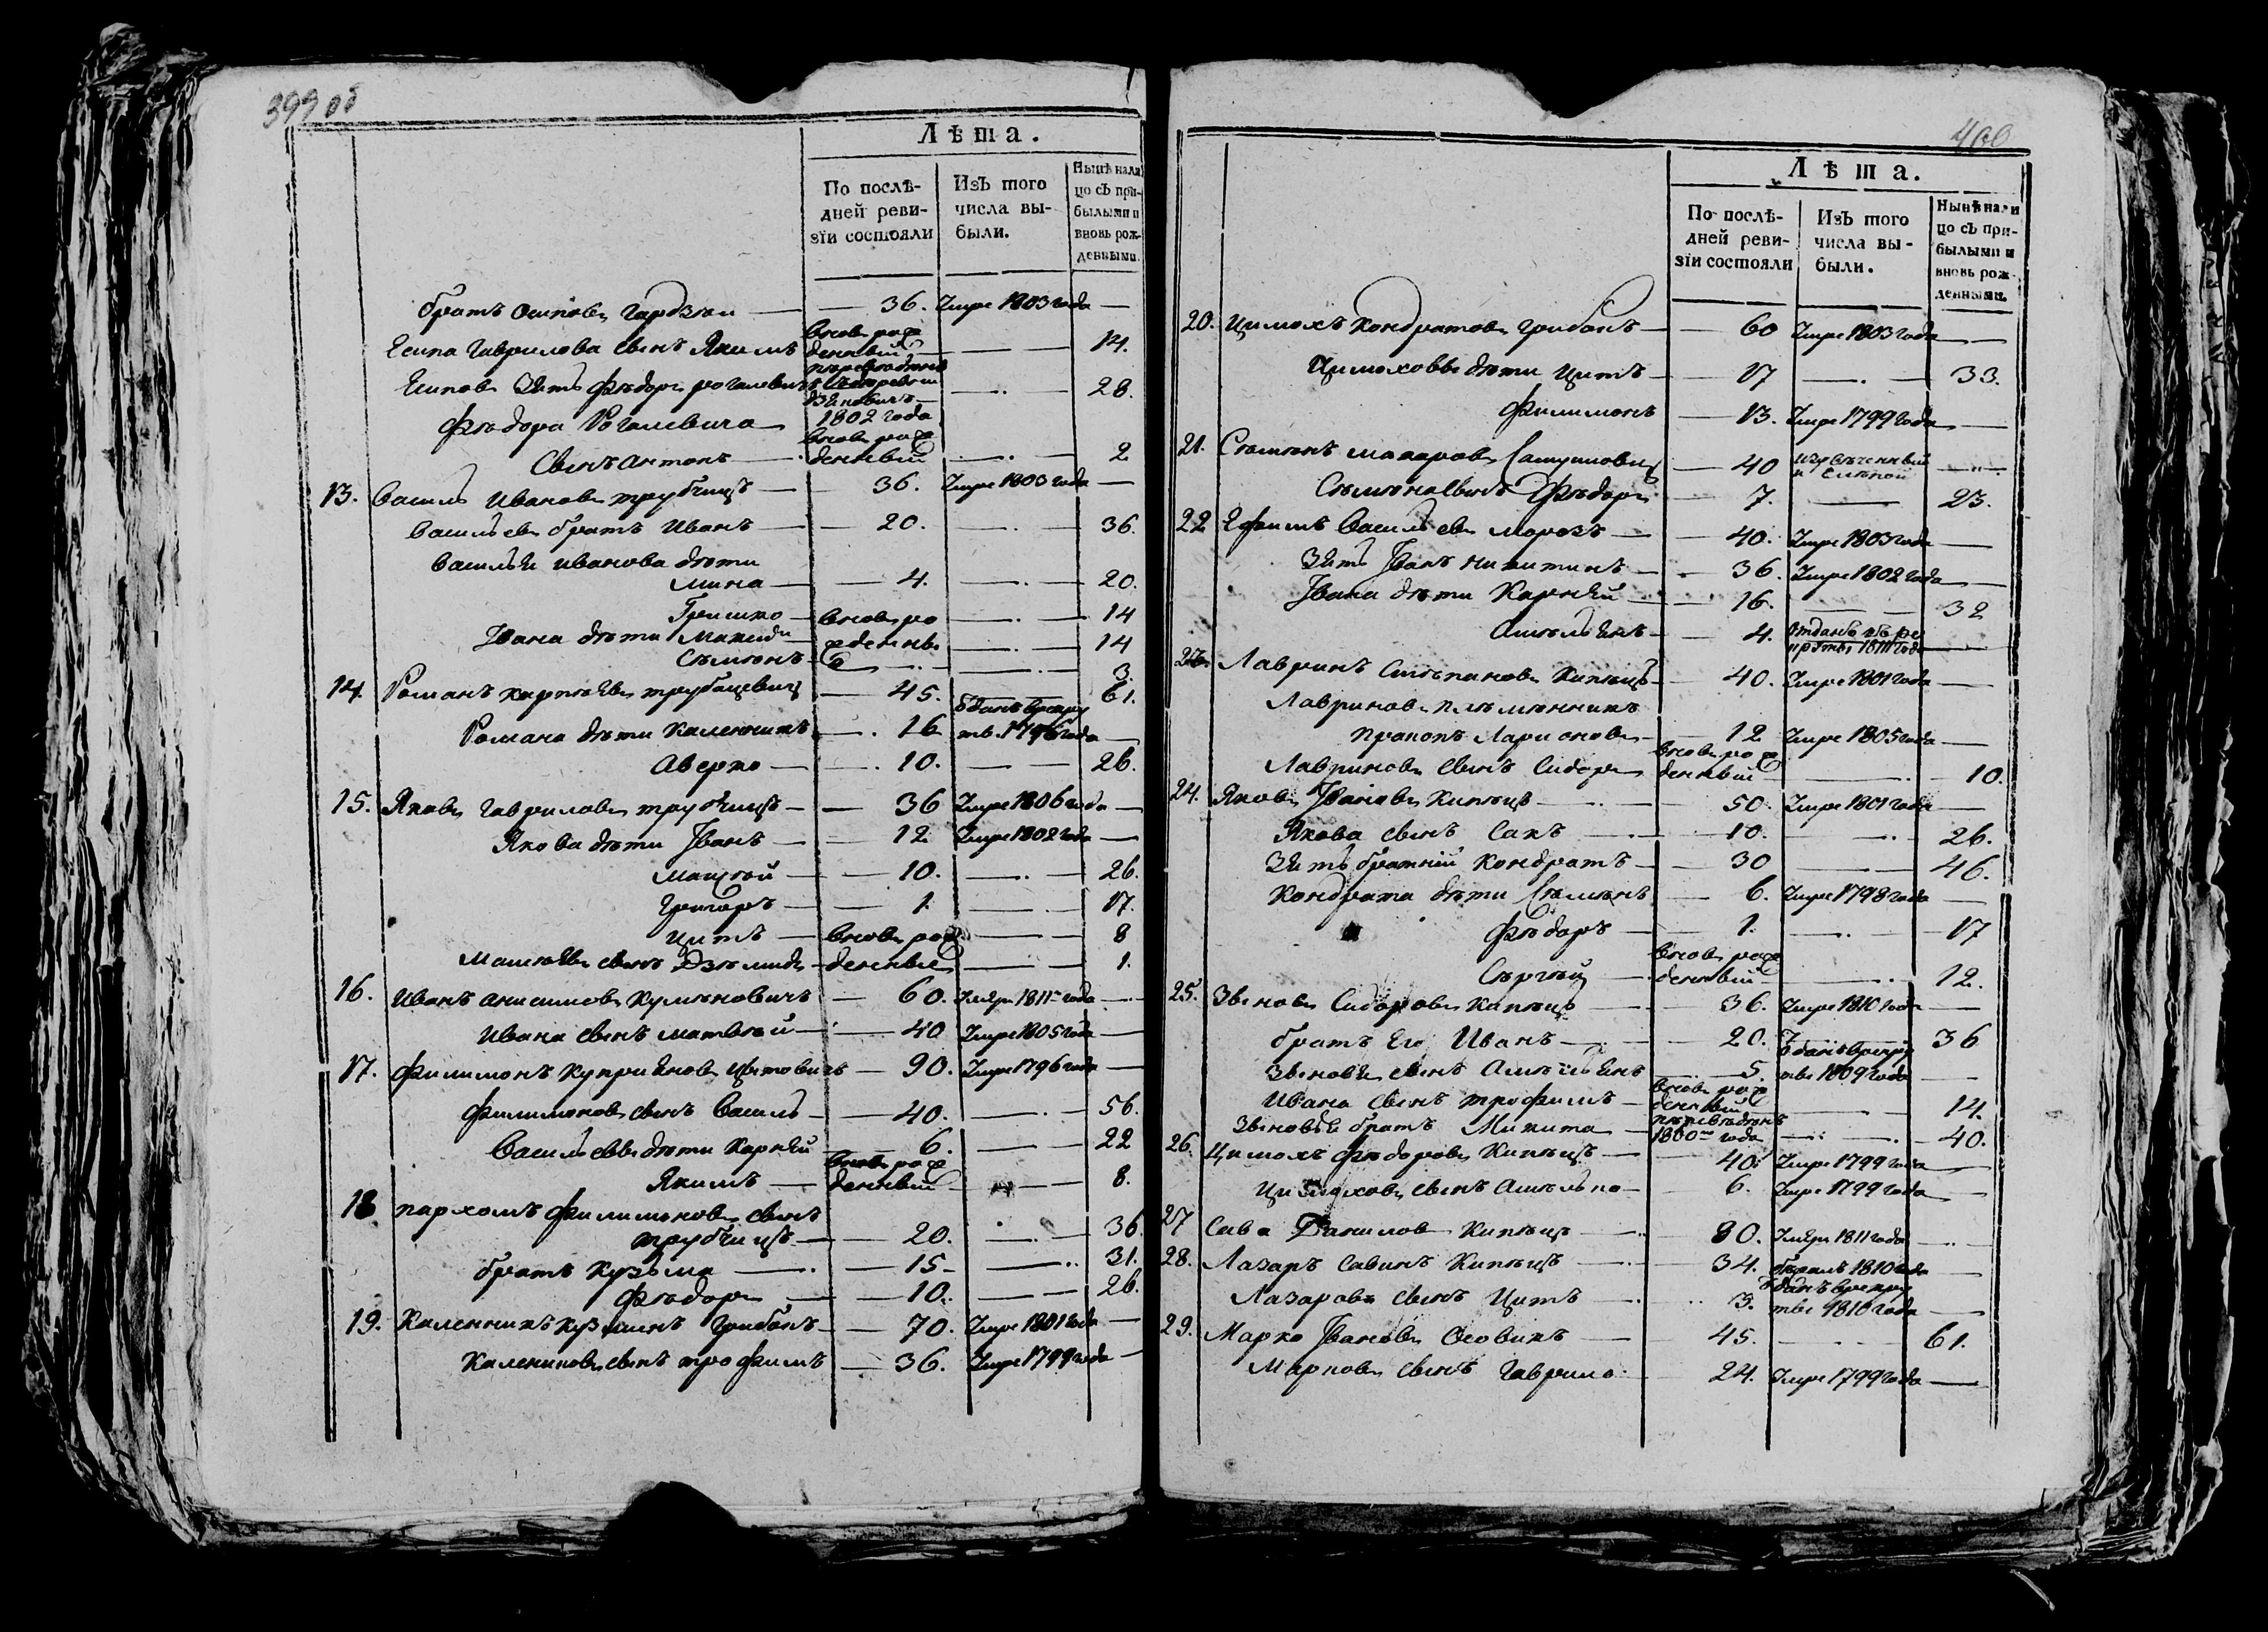 399 об
Лѣта.
По послѣ-
дней реви-
зїи состояли
Изъ того
числа вы-
были.
Нынѣ нали
цо съ при-
былыми и
вновь рож-
денными.
братъ осиповъ гардзѣи — 36. Умре 1803 года —
Есипа Гаврилова сынъ Якимъ вновь рож денный — 14.
Есиповъ Зять Фѣдоръ рогалевичъ — 28.
1802 года
Фѣдора Рогалевича
Сынъ антонъ — вновь рож денный — 2
13. Василь Ивановъ трубчицъ — 36. Умре 1803 года —
Васильевъ братъ Иванъ — 20. — 36.
Василья иванова дѣти
Мина — 4. — 20.
Гришко — вновь ро — 14
Ивана дѣти — жденны — 14
Сѣмѣнъ — е — 3.
14. Романъ карпѣевъ трубацевичъ — 45. — 61.
Романа дѣти Каленникъ — 16 отданъ врекру тъ. 1796 года —
Аверко — 10. — 26.
15. Яковъ гавриловъ трубчицъ — 36 Умре 1806 года —
Якова дѣти Іванъ — 12 Умре 1802 года —
10. — 26.
Григоръ — 1. — 17.
Цитъ — вновь рож — 8
сынъ — денные — 1.
16. Иванъ анисимовъ Кулѣновичъ — 60. Умре 1811 года —
Ивана сынъ матвѣй — 40 Умре 1805 года —
17. Филимонъ куприяновъ Цитовичъ — 90. Умре 1796 года —
Филимоновъ сынъ Василь — 40. — 56.
Васильевы дѣти Карнѣй — 6. — 22
Якимъ — вновь рож денный — 8.
18 пархомъ филимоновъ сынъ
трубчицъ — 20. — 36
братъ Кузьма — 15 — 31.
Фѣдоръ — 10. — 26.
19. Каленникъ кузминъ Грибокъ — 70. Умре 1801 года —
Калениковъ сынъ трофимъ — 36. Умре 1799 года —
400
Лѣта.
По послѣ-
дней реви-
зїи состояли
Изъ того
числа вы-
были.
Нынѣ нали
цо съ при-
былыми и
вновь рож-
денными.
20. Цимохъ Кондратовъ грибокъ — 60 Умре 1803 года —
Цимоховы дѣти Цитъ — 17 — 33.
Филимонъ — 13. Умре 1799 года —
21. Сѣмѣнъ макаровъ — 40 —
Сѣмѣна сынъ Фѣдоръ — 7. — 23.
22 Ефимъ Васильевъ морозъ — 40. Умре 1803 года —
Зять Іванъ никитинъ — 36. Умре 1802 года —
Івана дѣти Карнѣй — 16. — 32
Амельянъ — 4. отданъ въ ре круты 1811 года —
23. Лавринъ Сте́пановъ Кипѣцъ — 40. Умре 1801 года —
Лавриновъ племѣнникъ
Прокопъ Ларионовъ — 12 Умре 1805 года —
Лавриновъ сынъ Сидоръ вновь рож денный — 10.
24. Яковъ Івановъ Кипѣцъ — 50. Умре 1801 года —
Якова сынъ Сакъ — 10. — 26.
Зять братнiй Кондратъ — 30 — 46.
Кондрата дѣти Сѣмѣнъ — 6. Умре 1798 года —
Фѣдоръ — 1. — 17
Сѣргѣй — вновь рож денный — 12.
25. Зѣновъ Сидоровъ Кипѣцъ — 36. Умре 1810 года —
братъ Его Иванъ — 20. — 36
Зѣновѣя сынъ Амельянъ — 5. отданъ врекру ты 1809 года —
Ивана сынъ трофимъ — вновь рож денный — 14.
Зѣновѣя братъ Микита — переведенъ 1800 года — 40.
26. Цимохъ Фѣдоровъ Кипѣцъ — 40. Умре 1799 года —
Цимоховъ сынъ Амелько — 6. Умре 1799 года —
27 Сава Даниловъ Кипѣцъ — 80. Умре 1811 года —
28. Лазаръ Савинъ Кипѣцъ — 34. бѣжалъ 1810 года —
Лазаровъ сынъ Цитъ — 3. отданъ врекру ты 1810 года —
29. Марко Івановъ Осовикъ — 45. — 61.
Марковъ сынъ Гаврило — 24. Умре 1799 года —